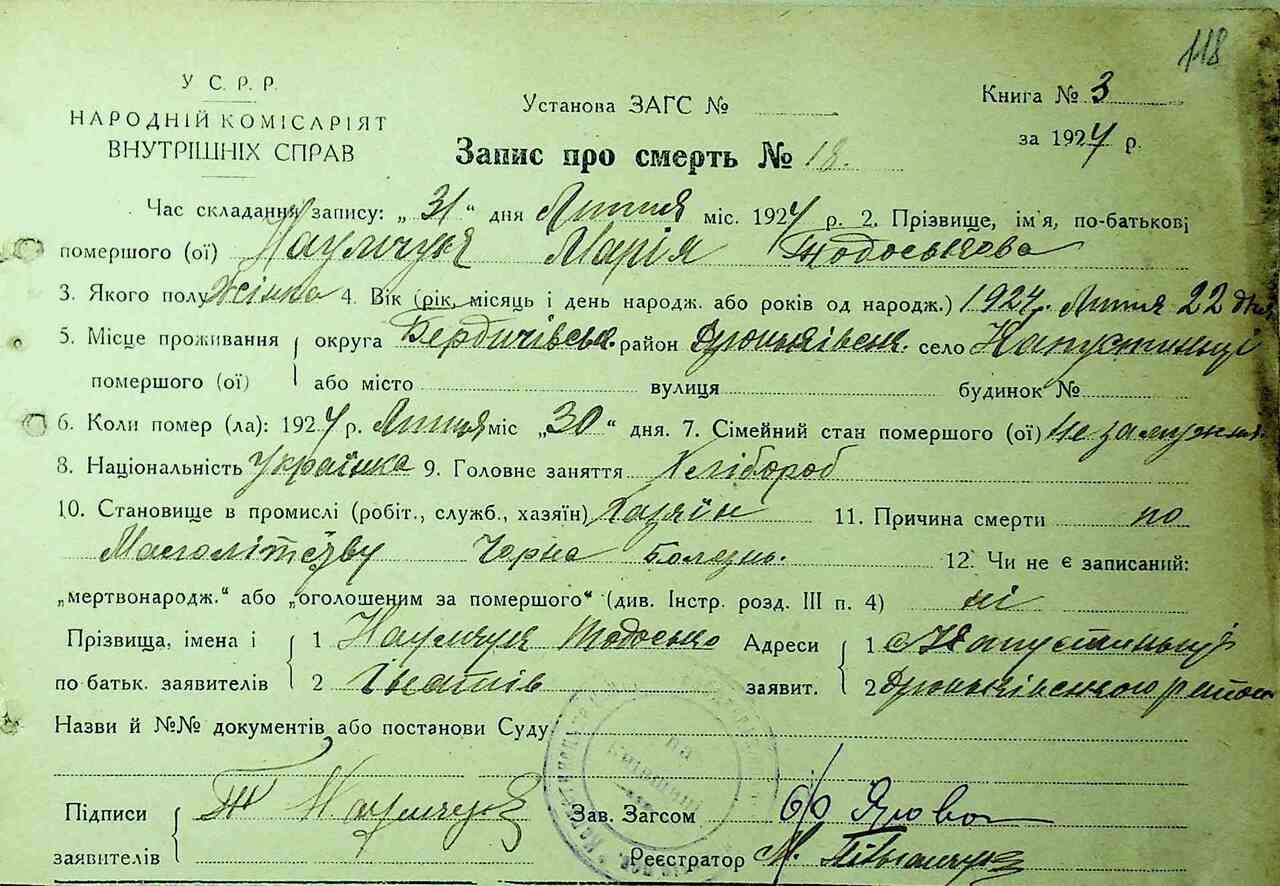 118
У С. Р. Р.
НАРОДНІЙ КОМІСАРІЯТ
ВНУТРІШНІХ СПРАВ
Установа ЗАГС №
Книга № 3
за 1924 р.
Запис про смерть № 18.
Час складання запису: „ 31 “ дня Липня міс. 1924 р. 2. Прізвище, ім'я, по-батькові
помершого (ої) Наумчук Марія Тодоськова
3. Якого полу Жінка 4. Вік (рік, місяць і день народж. або років од народж.) 1924 Липня 22 дня
5. Місце проживання округа Бердичівськ. район село Капустинці
помершого (ої) або місто вулиця будинок №
6. Коли помер (ла): 1924 р. Липця міс „30“ дня. 7. Сімейний стан помершого (ої) не замужня
8. Національність Українка 9. Головне заняття Хлібороб
10. Становище в промислі (робіт., служб., хазяїн) Хазяїн 11. Причина смерти по
Малолітству Чорна Болезнь. 12. Чи не є записаний:
„мертвонародж.“ або „оголошеним за помершого“ (див. Інстр. розд. III п. 4) ні
Прізвища, імена і 1 Наумчук Тодосько Адреси 1 с Капустинці
по батьк. заявителів 2 Гнатів заявит. 2 району
Назви й №№ документів або постанови Суду
Підписи Т Наумчук Зав. Загсом
заявителів Реєстратор